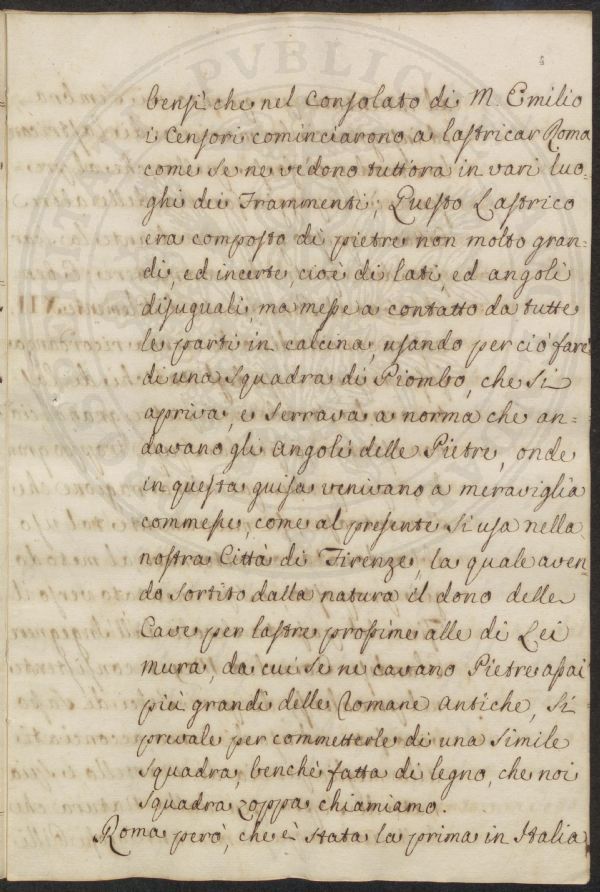 bensì che nel Consolato di M. Emilio
i Censori cominciarono a lastricar Roma
come se ne vedono tuttora in vari luo-
ghi dei Frammenti; Questo Lastrico
era composto di pietre non molto gran-
di, ed incerte, cioè di lati, ed angoli
disuguali, ma messe a contatto da tutte
le parti in calcina, usando per ciò fare
di una Squadra di Piombo, che si
apriva, e serrava a norma che an=
davano gli angoli delle Pietre, onde
in questa guisa venivano a meraviglia
commesse, come al presente si usa nella
nostra Città di Firenze, la quale aven
do sortito dalla natura il dono delle
Cave per lastre prossime alle di Lei
mura, da cui se ne cavano Pietre assai
più grandi delle Romane antiche, si
prevale per commetterle di una simile
squadra, benchè fatta di legno, che noi
squadra zoppa chiamiamo.
Roma però, che è stata la prima in Italia